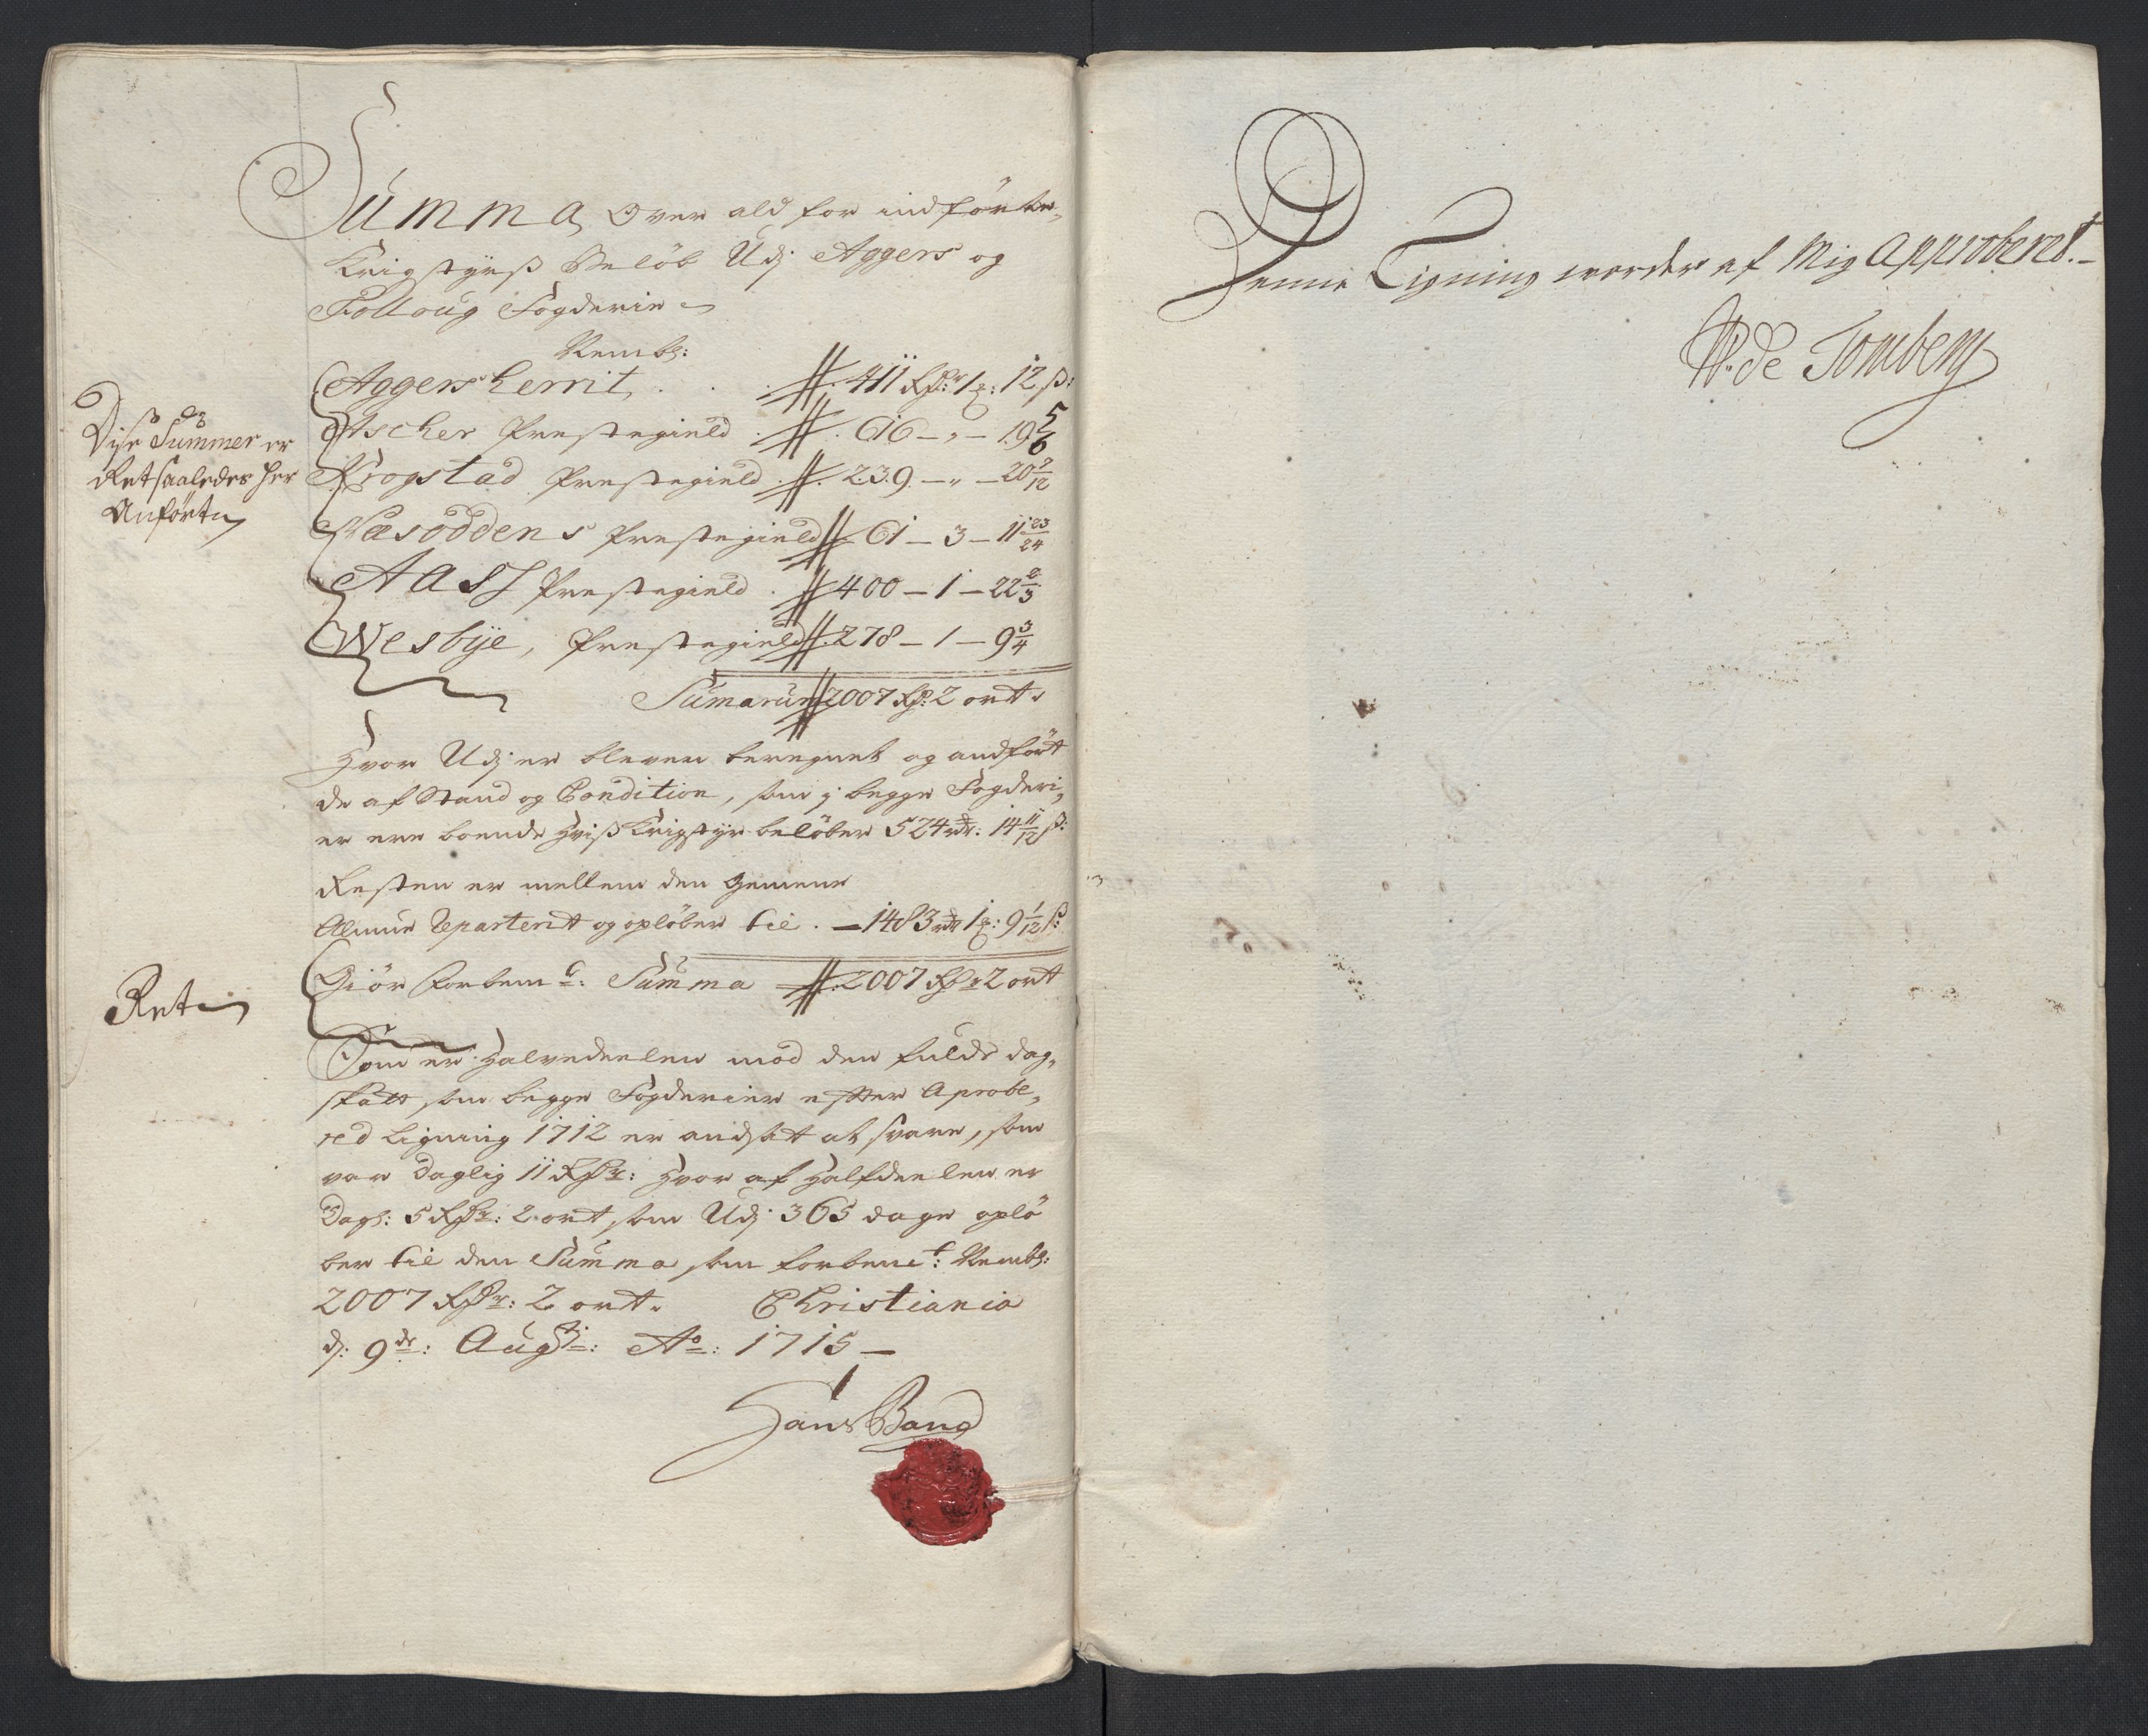 Summa Over ald for indförte
Krigstyrß Beløb Udj Aggers og
Folloug Fogderie
Nembl:
Aggers herrit, . . . 411 Rdr 1 z: 12 ß:
Ascher Prestegield . 616 – „ – 19 5/6
Krogstad Prestegield . 239 – „ – 20 7/12
Næsoddens Prestegield 61 – 3 – 11 23/24
Aass Prestegield . 400 – 1 – 22 2/3
Wesbÿe, Prestegield 278 – 1 – 9 3/4
Sumarum 2007 Rdr: 2 ort.
Disse Summer er
Ret saaledes her
Anførte
Hvor Udj er bleven beregnet og andført
de af Stand og Condition, som j begge Fogderi,
er ere boende hviß Krigstyr beløber 524 rdr: 14 11/12 ß:
Resten er mellem den Gemene
Almue Reparterit og opløber til . – 1483 rdr 1 z: 9 1/12 ß:
Giör forbemt: Summa 2007 Rdr 2 ort
Ret
Som er Halvedeelen mod den fulde dag,
skatt som begge Fogderier efter Aprobe,
red Ligning 1712 er andsat at svare, som
var daglig 11 Rdr: hvor af halfdeelen er
Dagl: 5 Rdr: 2 ort, som Udj 365 dage oplö
ber til den Summa som forbemt: Nembl:
2007 Rdr: 2 ort. Christiania
d: 9de: Augti: Ao: 1715 –
Hans Bang
Denne Ligning worder af Mig Approberet.–
W. de Tonsberg